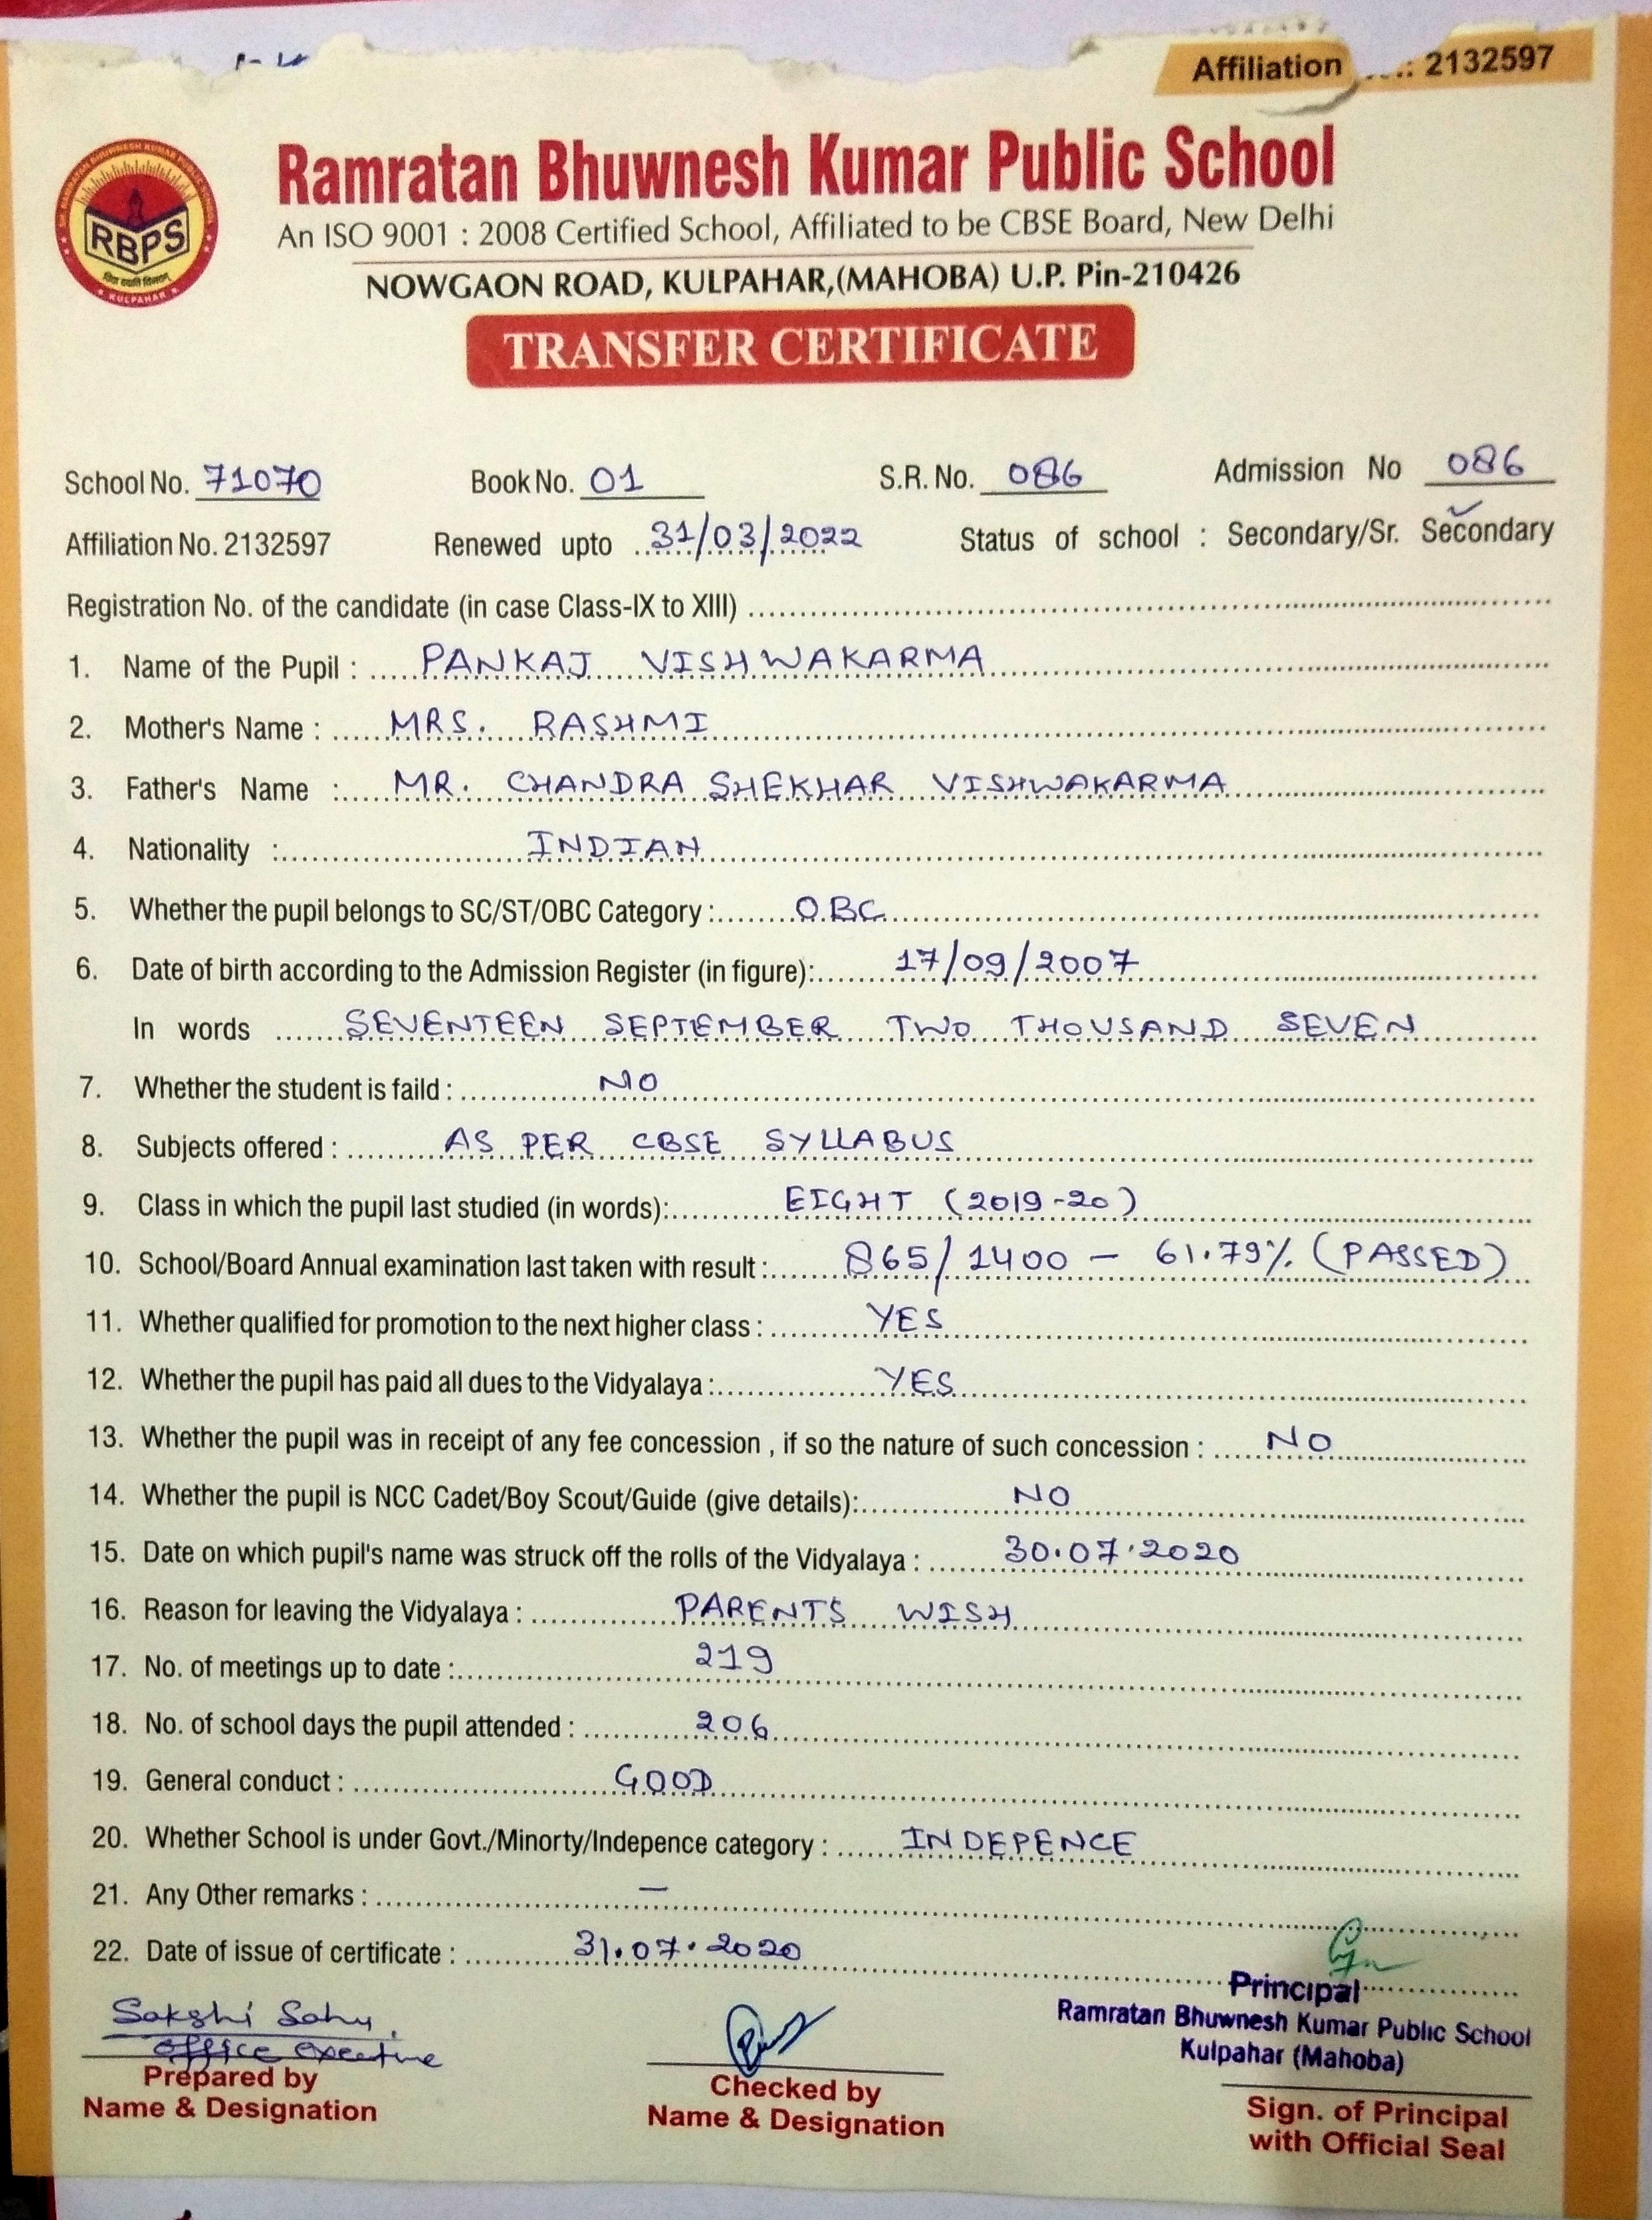 Affiliation ...: 2132597
RBPS
KULPAHAR
Ramratan Bhuwnesh Kumar Public School
An ISO 9001 : 2008 Certified School, Affiliated to be CBSE Board, New Delhi
NOWGAON ROAD, KULPAHAR,(MAHOBA) U.P. Pin-210426
TRANSFER CERTIFICATE
School No. 71070 Book No. 01 S.R. No. 086 Admission No 086
Affiliation No. 2132597 Renewed upto 31/03/2022 Status of school : Secondary/Sr. Secondary
Registration No. of the candidate (in case Class-IX to XIII)
1. Name of the Pupil : PANKAJ VISHWAKARMA
2. Mother's Name : MRS. RASHMI
3. Father's Name : MR. CHANDRA SHEKHAR VISHWAKARMA
4. Nationality : INDIAN
5. Whether the pupil belongs to SC/ST/OBC Category : OBC
6. Date of birth according to the Admission Register (in figure): 17/09/2007
In words SEVENTEEN SEPTEMBER TWO THOUSAND SEVEN
7. Whether the student is faild : NO
8. Subjects offered : AS PER CBSE SYLLABUS
9. Class in which the pupil last studied (in words): EIGHT (2019-20)
10. School/Board Annual examination last taken with result : 865/1400 - 61.79% (PASSED)
11. Whether qualified for promotion to the next higher class : YES
12. Whether the pupil has paid all dues to the Vidyalaya : YES
13. Whether the pupil was in receipt of any fee concession , if so the nature of such concession : NO
14. Whether the pupil is NCC Cadet/Boy Scout/Guide (give details): NO
15. Date on which pupil's name was struck off the rolls of the Vidyalaya : 30.07.2020
16. Reason for leaving the Vidyalaya : PARENTS WISH
17. No. of meetings up to date : 219
18. No. of school days the pupil attended : 206
19. General conduct : GOOD
20. Whether School is under Govt./Minorty/Indepence category : INDEPENCE
21. Any Other remarks : —
22. Date of issue of certificate : 31.07.2020
Principal
Ramratan Bhuwnesh Kumar Public School
Kulpahar (Mahoba)
Sakshi Sahu,
Office Executive
Prepared by
Name & Designation
Checked by
Name & Designation
Sign. of Principal
with Official Seal